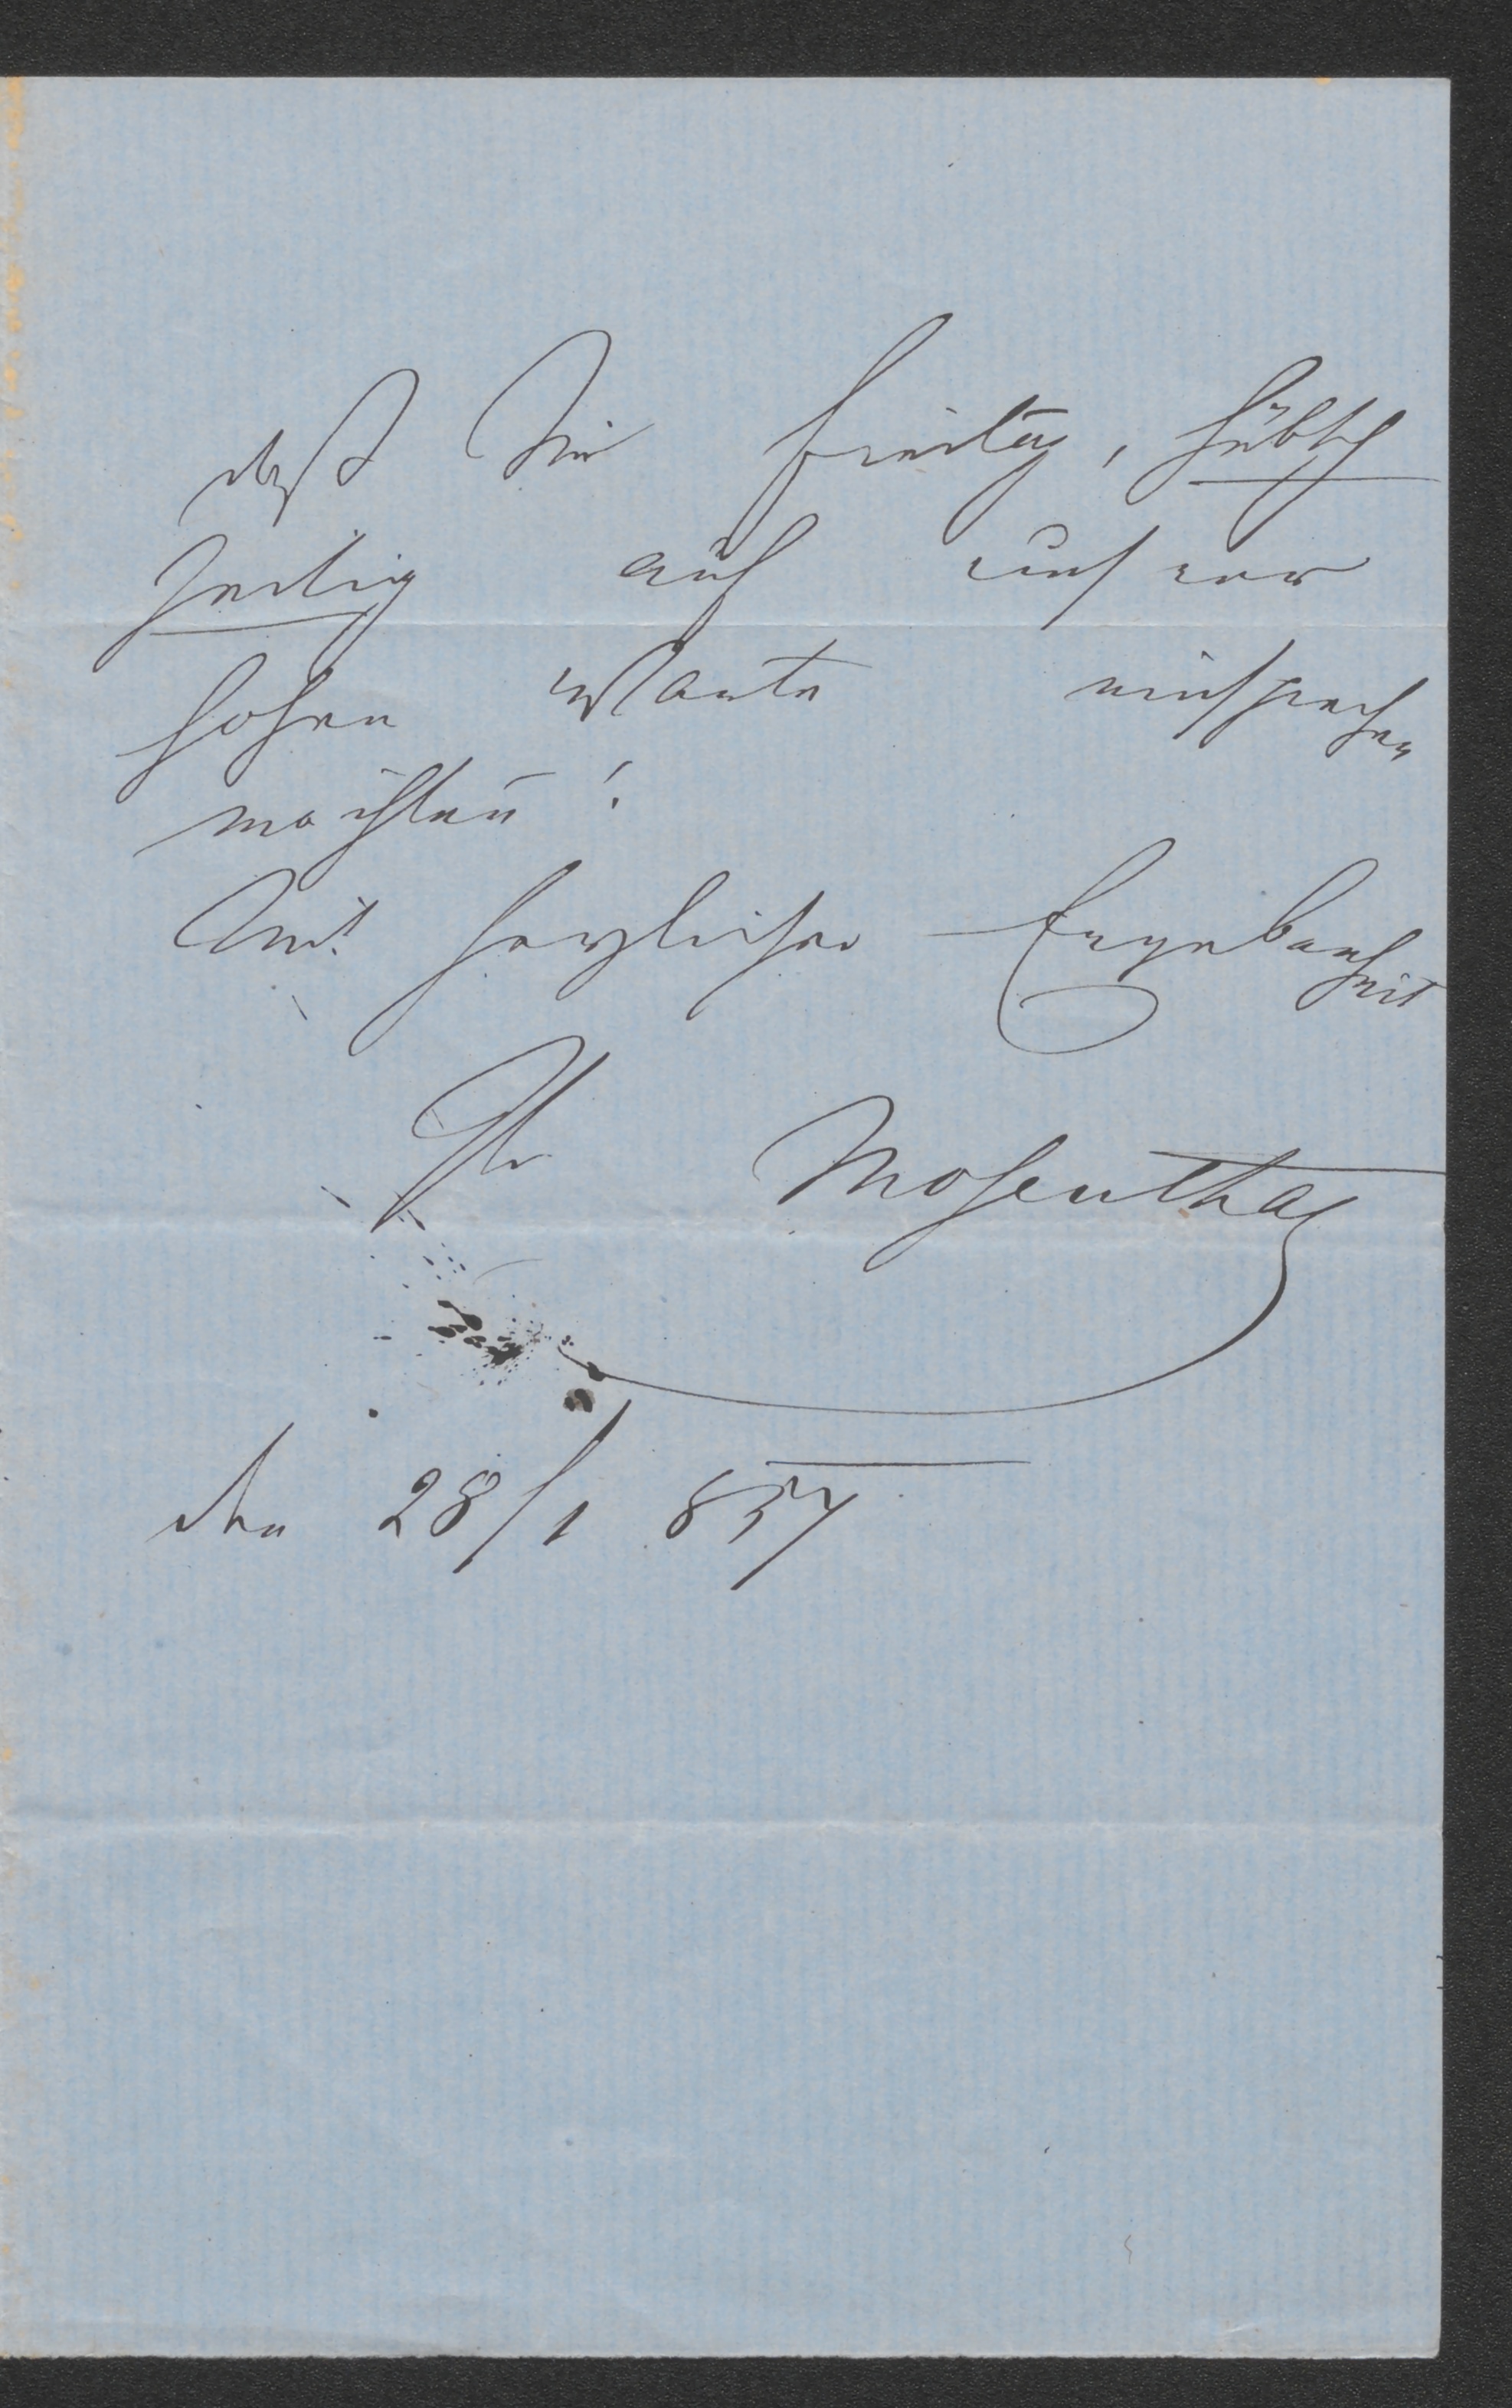 daß Sie Freitag, hübsch
zeitig auf unsrer
hohen Warte einsprechen
möchten!
Mit herzlicher Ergebenheit
Ihr Mosenthal
den 28/1 857